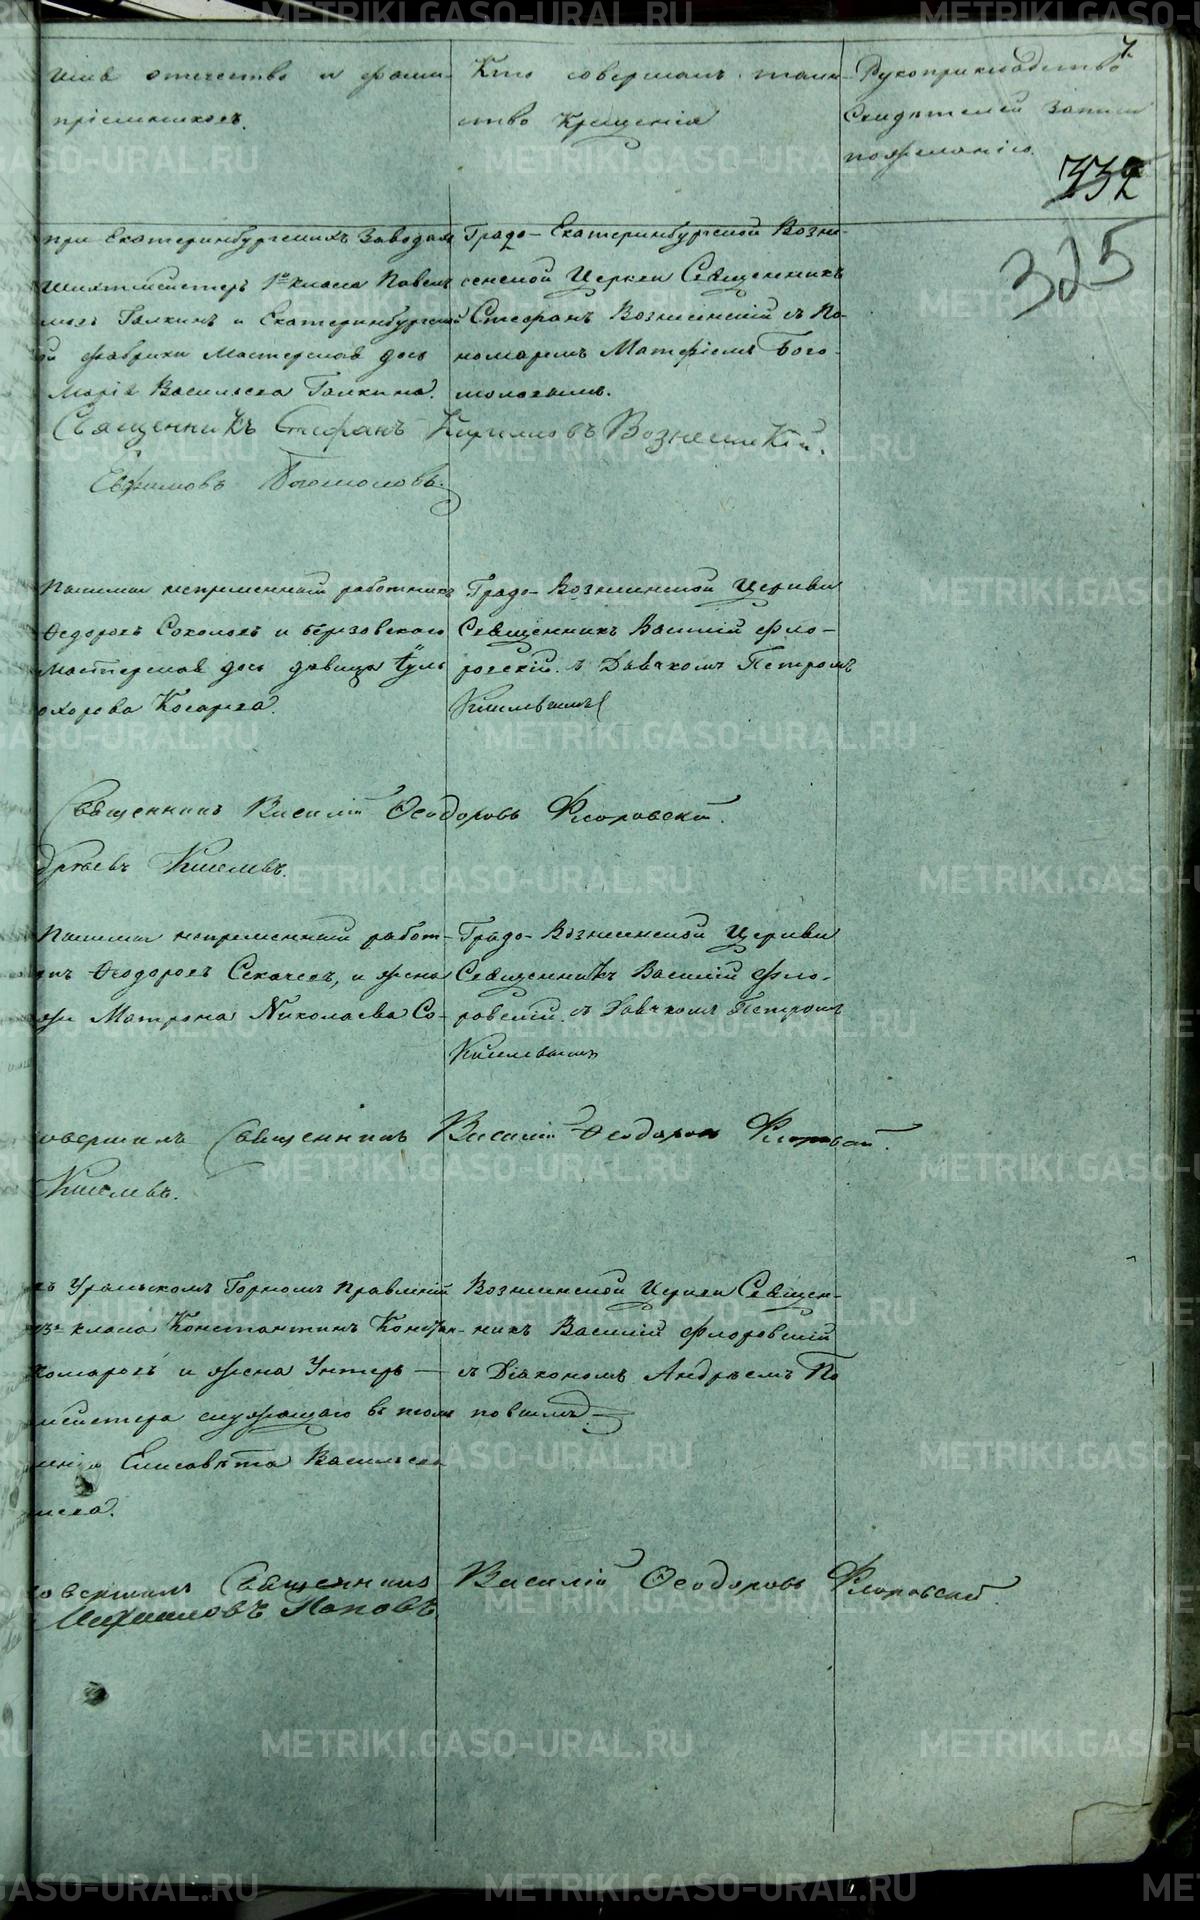 7
Имя отчество и фами-
пріемниковъ.
Кто совершалъ таин-
ство Крещенія
Рукоприкладство
Свидѣтелей записи
по желанію.
732
325
при Екатеринбургскихъ Заводахъ
Шихтмейстеръ 1го класа Павелъ
Галкинъ и Екатеринбургской
фабрики Мастерская дочь
Марія Васильева Галкина.
Градо-Екатеринбургской Возне-
сенской Церкви Священникъ
Стефанъ Вознесенскій съ По-
номаремъ Матфіемъ Бого-
моловымъ.
Священникъ Стефанъ Кириловъ Вознесенскій.
Ефимовъ Богомоловъ.
непременный работникъ
Ѳедоровъ Соколовъ и березовскаго
мастерская дочь девица
Косарева.
Градо-Вознесенской Церкви
Священникъ Василій Фло-
ровскій съ Дьячкомъ Петромъ
Киселевымъ
Священникъ Василій Ѳеодоровъ Флоровскій.
Киселевъ.
непременный работ-
Ѳеодоровъ Секачевъ, и жена
Матрона Николаева Со-
Градо-Вознесенской Церкви
Священникъ Василій Фло-
ровскій съ Дьячкомъ Петромъ
Киселевымъ
овершилъ Священникъ Василій Ѳеодоровъ Флоровскій.
Киселевъ.
Уральскомъ Горномъ Правленіи
класа Константинъ Констан-
и жена Унтеръ-
мейстера служащаго въ томъ
Елисавета Васильева
Вознесенской Церкви Священ-
никъ Василій Флоровскій
съ Діакономъ Андреемъ По
повымъ.
совершилъ Священникъ Василій Ѳеодоровъ Флоровскій.
Поповъ
METRIKI.GASO-URAL.RU